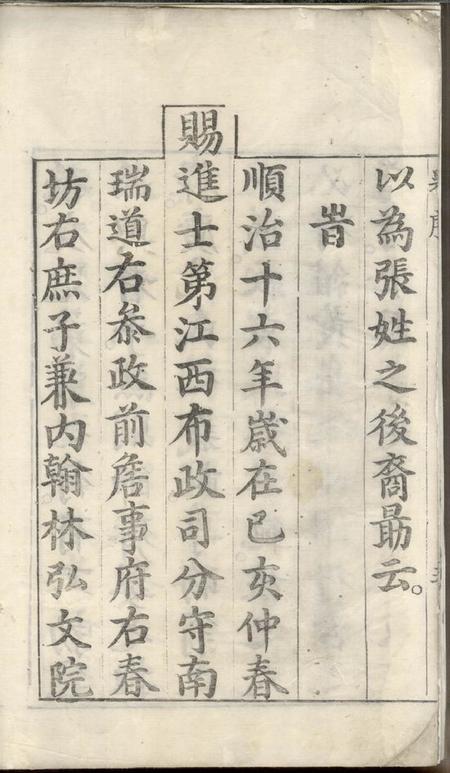 以為張姓之後裔勗云。
旹
順治十六年歲在己亥仲春
賜進士第江西布政司分守南
瑞道右叅政前詹事府右春
坊右庶子兼内翰林弘文院